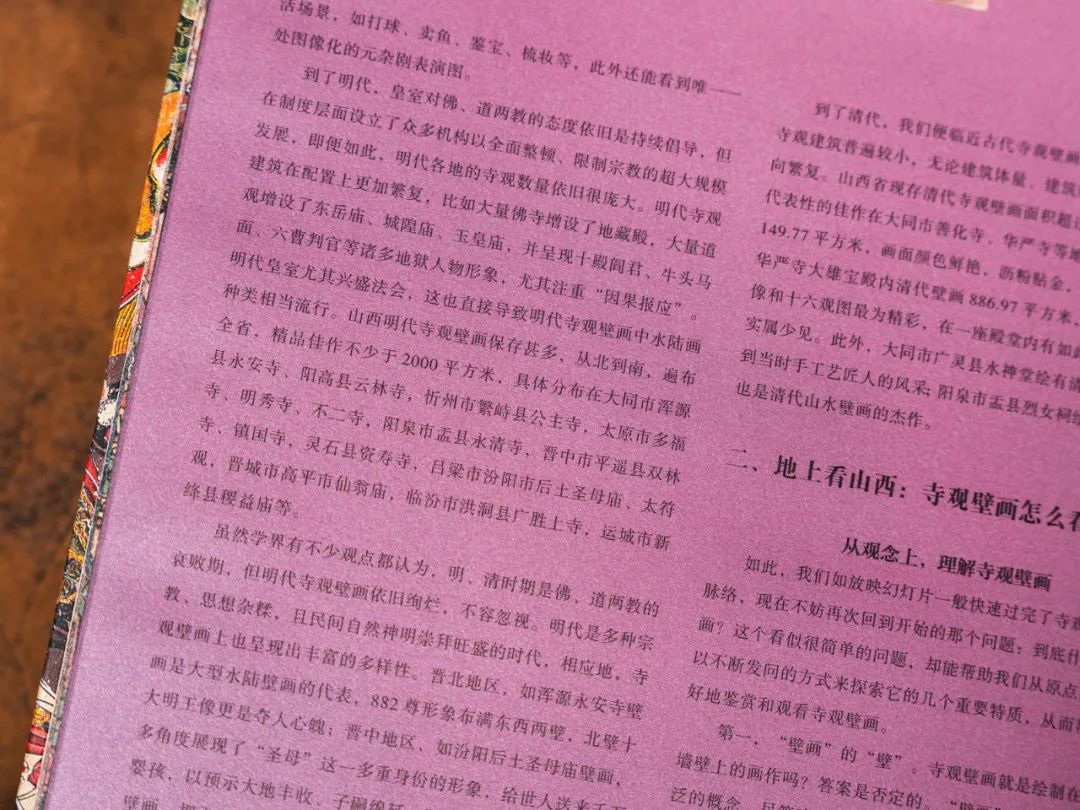 活场景，如打球、卖鱼、鉴宝、梳妆等，此外还能看到唯一一
处图像化的元杂剧表演图。
到了明代，皇室对佛、道两教的态度依旧是持续倡导，但
在制度层面设立了众多机构以全面整顿、限制宗教的超大规模
发展，即便如此，明代各地的寺观数量依旧很庞大。明代寺观
建筑在配置上更加繁复，比如大量佛寺增设了地藏殿，大量道
观增设了东岳庙、城隍庙、玉皇庙，并呈现十殿阎君、牛头马
面、六曹判官等诸多地狱人物形象，尤其注重“因果报应”。
明代皇室尤其兴盛法会，这也直接导致明代寺观壁画中水陆画
种类相当流行。山西明代寺观壁画保存甚多，从北到南，遍布
全省，精品佳作不少于2000平方米，具体分布在大同市浑源
县永安寺、阳高县云林寺，忻州市繁峙县公主寺，太原市多福
寺、明秀寺、不二寺，阳泉市盂县永清寺，晋中市平遥县双林
寺、镇国寺，灵石县资寿寺，吕梁市汾阳市后土圣母庙、太符
观，晋城市高平市仙翁庙，临汾市洪洞县广胜上寺，运城市新
绛县稷益庙等。
虽然学界有不少观点都认为，明、清时期是佛、道两教的
衰败期，但明代寺观壁画依旧绚烂，不容忽视。明代是多种宗
教、思想杂糅，且民间自然神明崇拜旺盛的时代，相应地，寺
观壁画上也呈现出丰富的多样性。晋北地区，如浑源永安寺壁
画是大型水陆壁画的代表，882尊形象布满东西两壁，北壁十
大明王像更是夺人心魄；晋中地区、如汾阳后土圣母庙壁画，
多角度展现了“圣母”这一多重身份的形象，给世人送来千万
婴孩，以预示大地丰收、子嗣绵延
到了清代，我们便临近古代寺观壁画
寺观建筑普遍较小，无论建筑体量、建筑
向繁复。山西省现存清代寺观壁画面积超过
代表性的佳作在大同市善化寺、华严寺等地
149.77平方米，画面颜色鲜艳，沥粉贴金，
华严寺大雄宝殿内清代壁画886.97平方米，
像和十六观图最为精彩，在一座殿堂内有如此
实属少见。此外，大同市广灵县水神堂绘有清
到当时手工艺匠人的风采；阳泉市盂县烈女祠绘
也是清代山水壁画的杰作。
二、地上看山西：寺观壁画怎么看
从观念上，理解寺观壁画
如此，我们如放映幻灯片一般快速过完了寺观
脉络，现在不妨再次回到开始的那个问题：到底什
画？这个看似很简单的问题、却能帮助我们从原点
以不断发问的方式来探索它的几个重要特质，从而
好地鉴赏和观看寺观壁画。
第一，“壁画”的“壁”。寺观壁画就是绘制在
墙壁上的画作吗？答案是否定的。
泛的概念